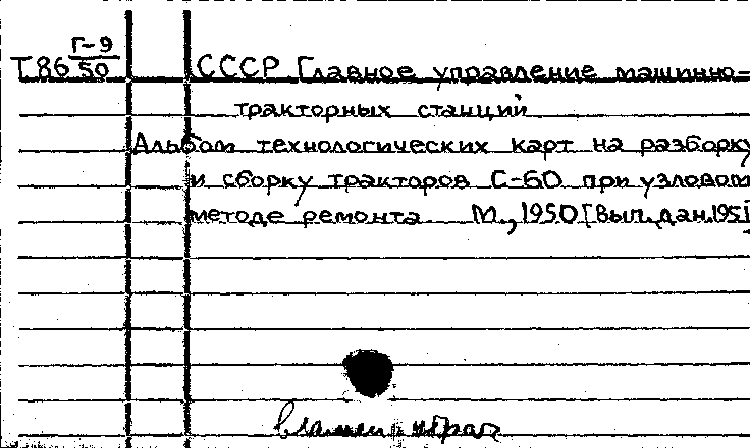 Г-9
Т86 50 СССР Главное управление машинно-
тракторных станций
Альбом технологических карт на разборку
и сборку тракторов С-60 при узловом
методе ремонта М., 1950 [Вып. дан. 1951